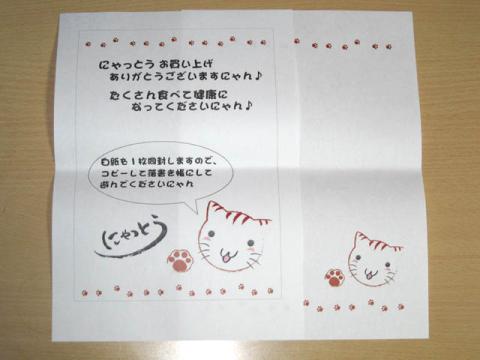 にゃっとう お買い上げ
ありがとうございますにゃん♪
たくさん食べて健康に
なってくださいにゃん♪
白紙も1枚同封しますので、
コピーして落書き帳にして
遊んでくださいにゃん
にゃっとう